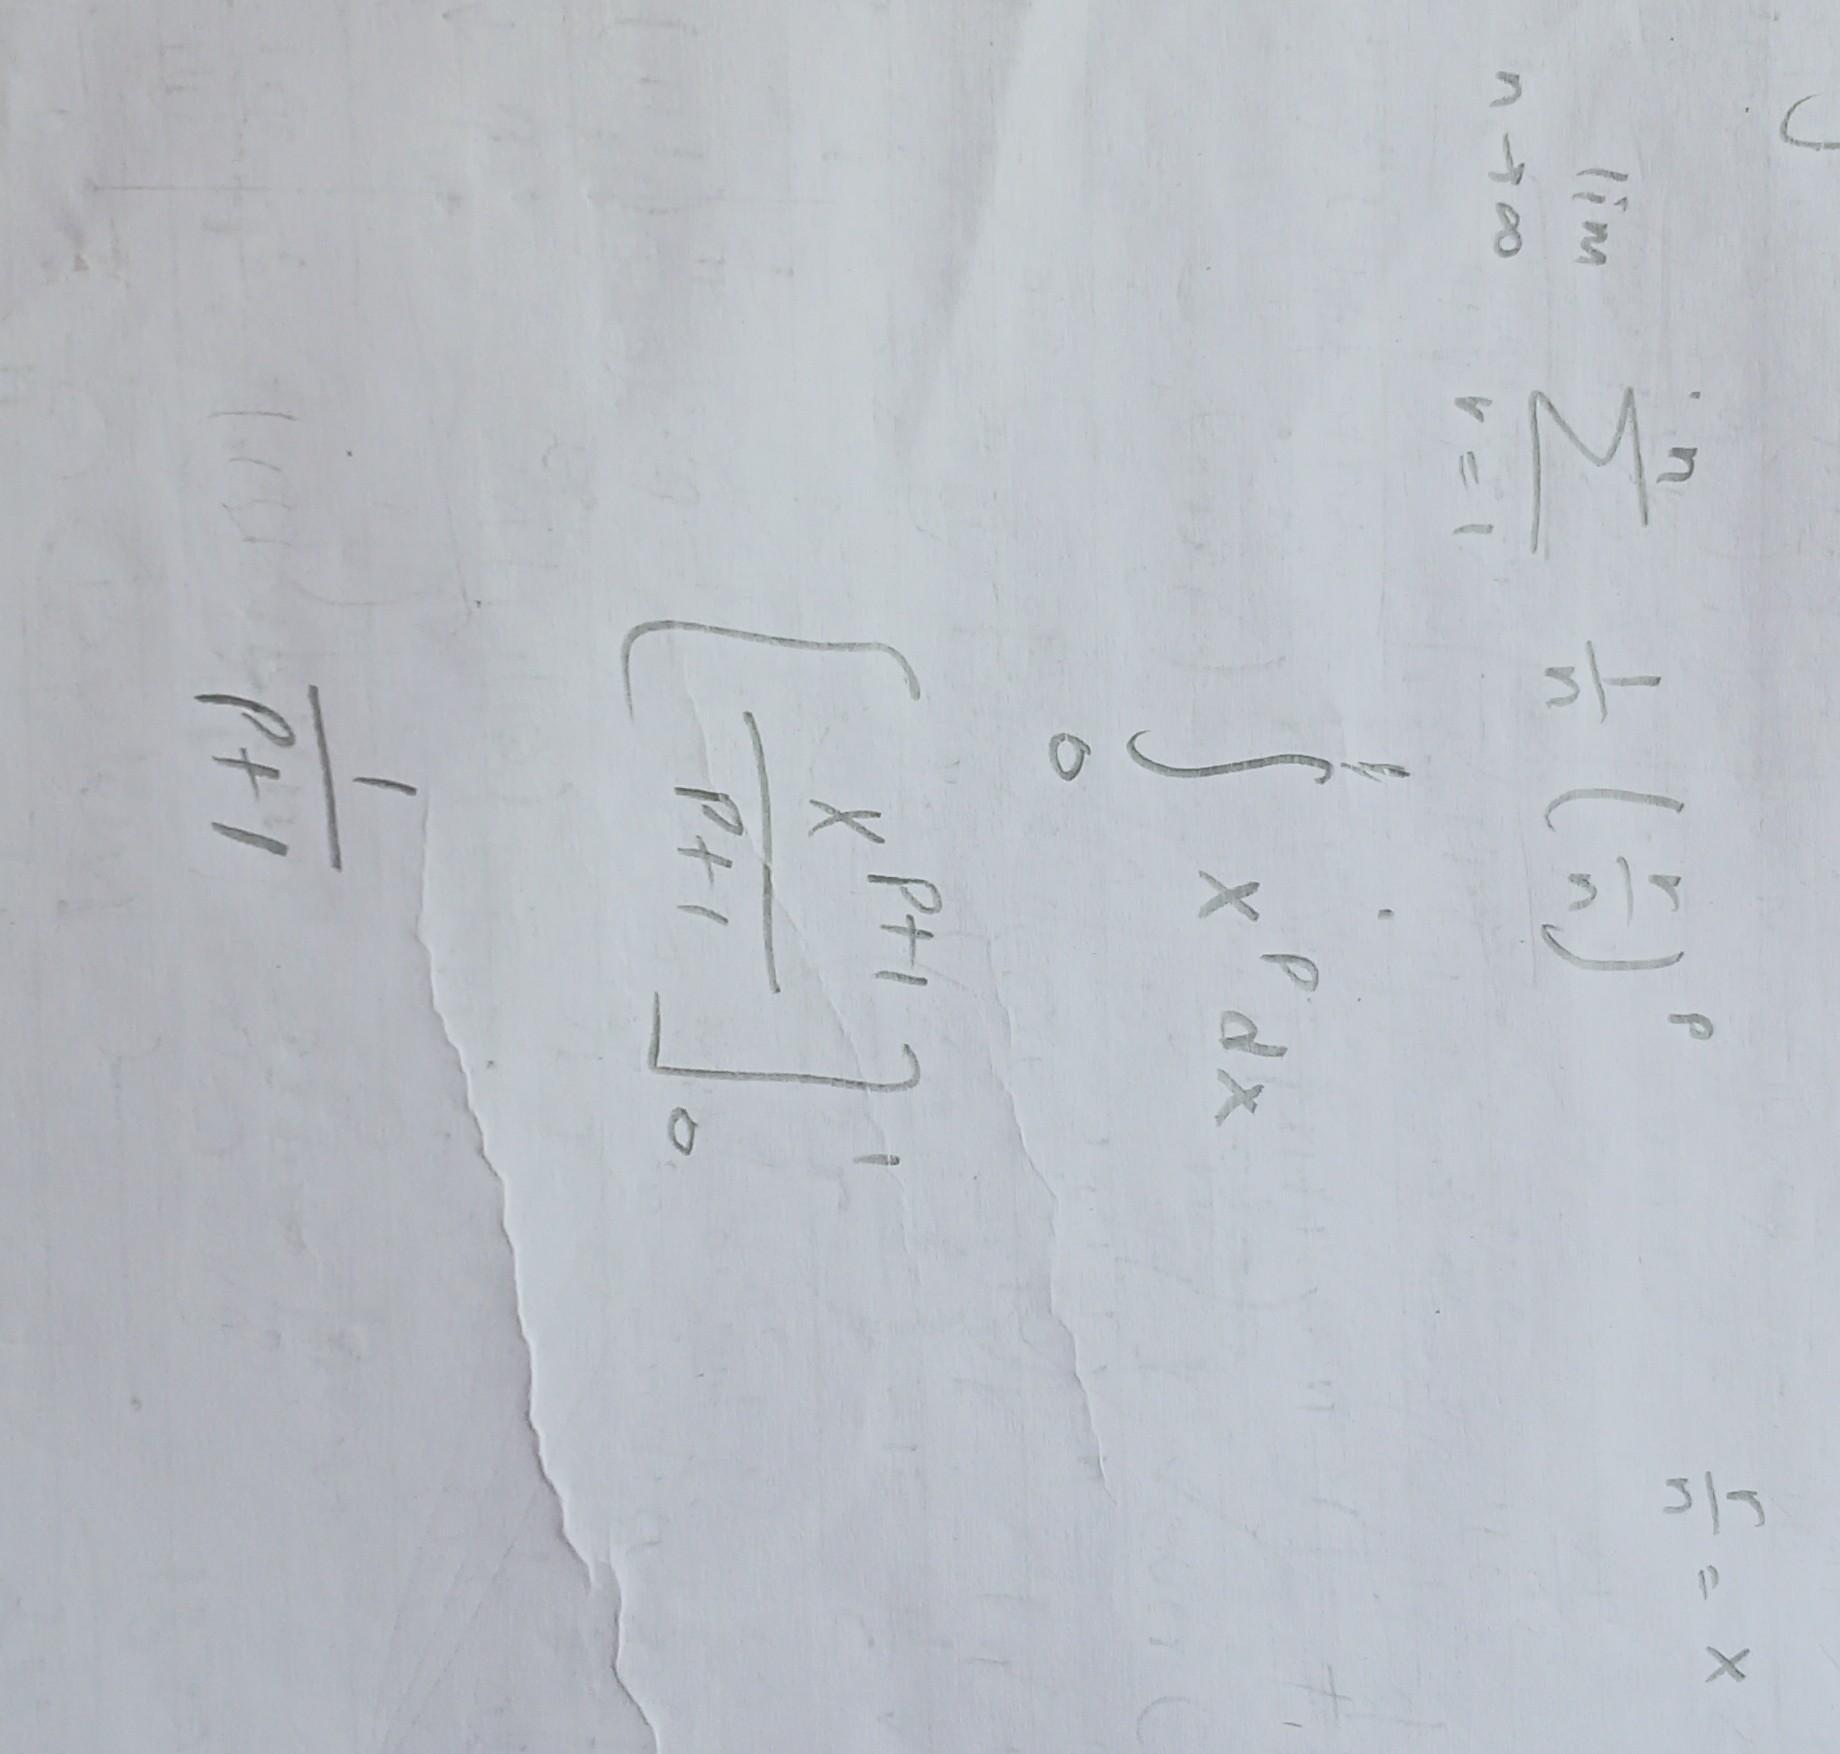 lim n→∞ n Σ r=1 1/n (r/n)^p r/n = x
∫_0^1 x^p dx
[x^(p+1)/(p+1)]_0^1
1/(p+1)